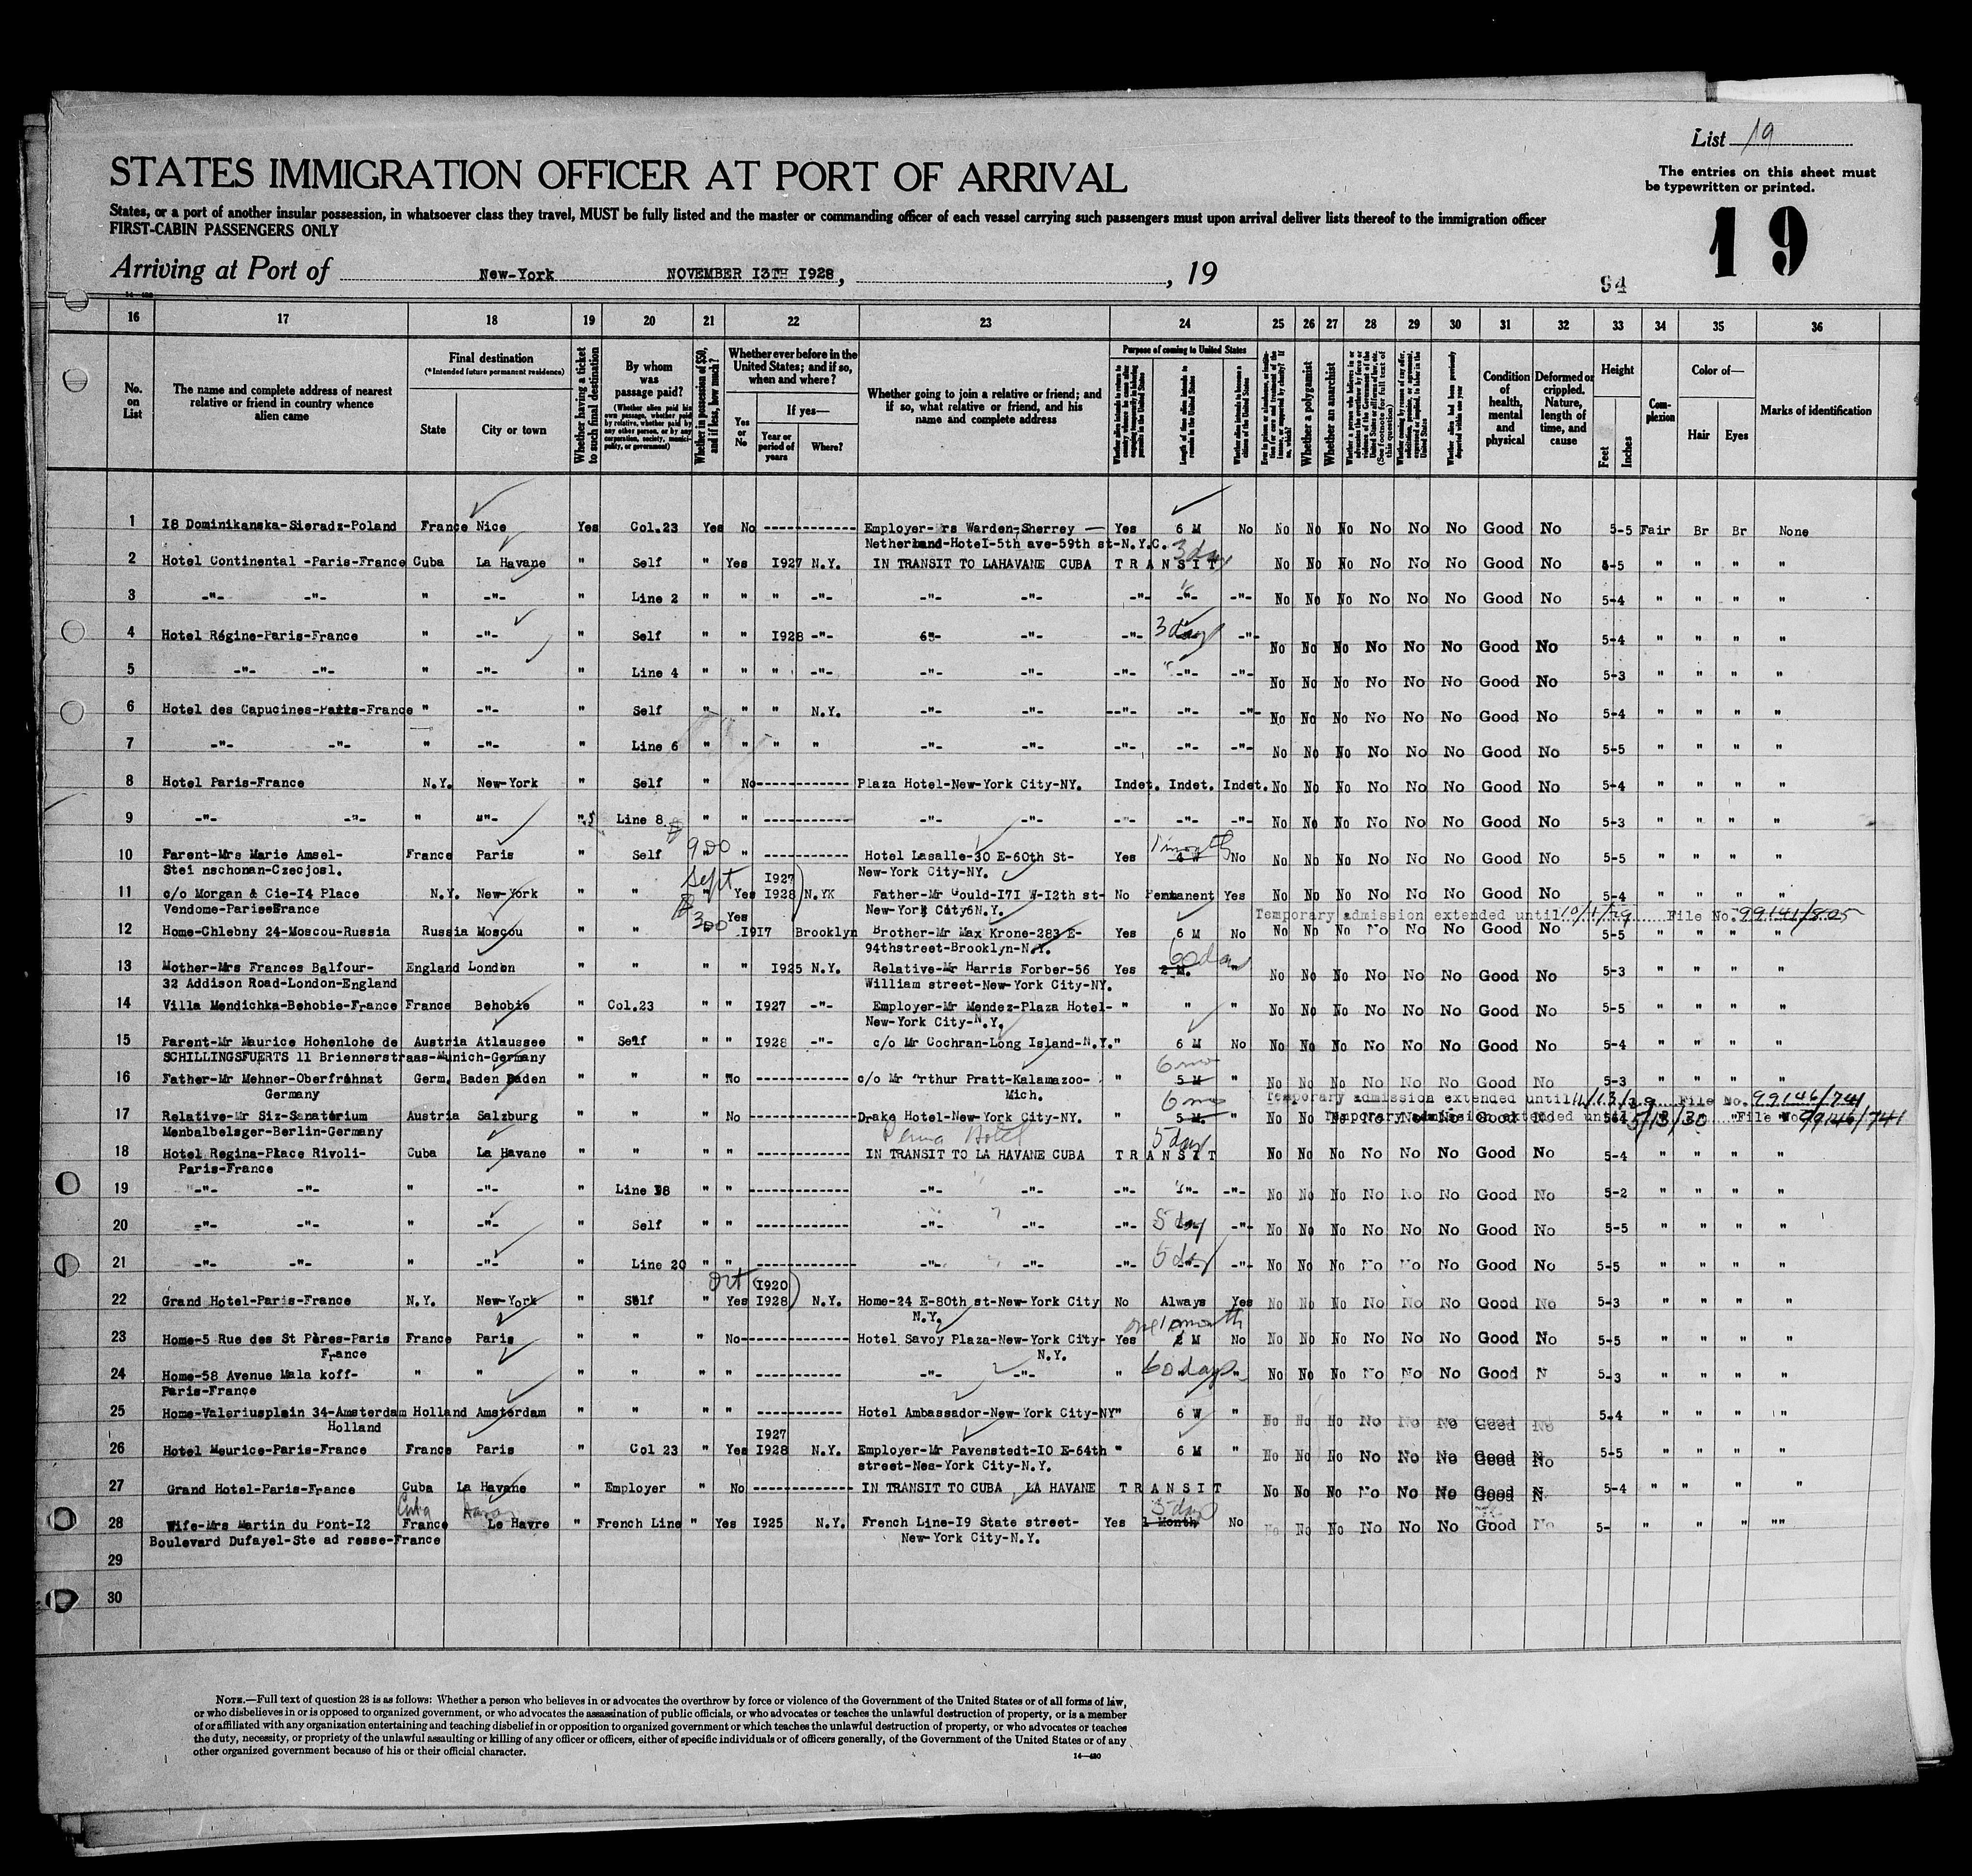 List 19
STATES IMMIGRATION OFFICER AT PORT OF ARRIVAL
The entries on this sheet must
be typewritten or printed.
States, or a port of another insular possession, in whatsoever class they travel, MUST be fully listed and the master or commanding officer of each vessel carrying such passengers must upon arrival deliver lists thereof to the immigration officer
FIRST-CABIN PASSENGERS ONLY
19
Arriving at Port of New-York NOVEMBER I3TH I928, , 19
94
16 17 18 19 20 21 22 23 24 25 26 27 28 29 30 31 32 33 34 35 36
No. on List
The name and complete address of nearest relative or friend in country whence alien came
Final destination (*Intended future permanent residence)
State City or town
Whether having a ticket to such final destination
By whom was passage paid?
(Whether alien paid his own passage, whether paid by relative, whether paid by any other person, or by any corporation, society, municipality, or government)
Whether in possession of $50, and if less, how much?
Whether ever before in the United States; and if so, when and where?
Yes or No If yes— Year or period of years Where?
Whether going to join a relative or friend; and if so, what relative or friend, and his name and complete address
Purpose of coming to United States
Length of time alien intends to remain in the United States
Whether a polygamist
Whether an anarchist
(See footnote for full text of this question)
Condition of health, mental and physical
Deformed or crippled. Nature, length of time, and cause
Height Feet Inches
Complexion
Color of— Hair Eyes
Marks of identification
1 I8 Dominikanska-Sieradz-Poland France Nice Yes Col.23 Yes No ------------ Employer-Mrs Warden-Sherrey — Yes 6 M No No No No No No No Good No 5-5 Fair Br Br None
Netherland-HoteI-5th ave-59th st-N.Y.C.
2 Hotel Continental -Paris-France Cuba La Havane " Self " Yes I927 N.Y. IN TRANSIT TO LAHAVANE CUBA T R A N S I T 3 day No No No No No No Good No 5-5 " " " "
3 -"- -"- " -"- " Line 2 " " " -"- -"- -"- -"- -"- -"- No No No No No No Good No 5-4 " " " "
4 Hotel Régine-Paris-France " -"- " Self " " I928 -"- -"- -"- 3 day -"- No No No No No No Good No 5-4 " " " "
5 -"- -"- " -"- " Line 4 " " " -"- -"- -"- -"- -"- -"- No No No No No No Good No 5-3 " " " "
6 Hotel des Capucines-Paris-France " -"- " Self " " " N.Y. -"- -"- --"- -"- -"- No No No No No No Good No 5-4 " " " "
7 -"- -"- " -"- " Line 6 " " " " -"- -"- -"- -"- -"- No No No No No No Good No 5-5 " " " "
8 Hotel Paris-France N.Y. New-York " Self " No------------ Plaza Hotel-New-York City-NY. Indet. Indet. Indet. No No No No No No Good No 5-4 " " " "
9 -"- -"- " -"- " Line 8 " " ------------ -"- -"- -"- -"- -"- No No No No No No Good No 5-3 " " " "
10 Parent-Mrs Marie Amsel- France Paris " Self $ 900 " ------------ Hotel Lasalle-30 E-60th St- Yes 1 month 4 W No No No No No No No Good No 5-5 " " " "
Stei nschonan-Czecjosl. New-York City-NY.
Sept I927
11 c/o Morgan & Cie-I4 Place N.Y. New-York " " " Yes I928 N.YK Father-Mr Gould-I7I W-I2th st- No Permanent Yes No No No No No No Good No 5-4 " " " "
Vendome-Paris France $ 300 Yes New-York City N.Y. Temporary admission extended until 10/1/29 File No. 99141/805
12 Home-Chlebny 24-Moscou-Russia Russia Moscou " " " I9I7 Brooklyn Brother-Mr Max Krone-283 E- Yes 6 M No No No No No No No Good No 5-5 " " " "
94thstreet-Brooklyn-N.Y.
13 Mother-Mrs Frances Balfour- England London " " " " I925 N.Y. Relative-Mr Harris Forber-56 Yes 60 day 2 M. " No No No No No No Good No 5-3 " " " "
32 Addison Road-London-England William street-New-York City-NY.
14 Villa Mendichka-Behobie-France France Behobie " Col.23 " " I927 -"- Employer-Mr Mendez-Plaza Hotel- " " " No No No No No No Good No 5-5 " " " "
New-York City-N.Y.
15 Parent-Mr Maurice Hohenlohe de Austria Atlaussee " Self " " I928 -"- c/o Mr Cochran-Long Island-N.Y. " 6 M No No No No No No No Good No 5-4 " " " "
SCHILLINGSFUERTS 11 Briennerstraas-Munich-Germany
16 Father-Mr Mehner-Oberfrohnat Germ. Baden Baden " " " No ------------ c/o Mr Arthur Pratt-Kalamazoo- " 6 mo 5 M " No No No No No No Good No 5-3 " " " "
Germany Mich. Temporary admission extended until 11/13/29 File No. 99146/741
17 Relative-Mr Siz-Sanatorium Austria Salzburg " " " No ------------ Drake Hotel-New-York City-NY. " 6 mo 5 M. " No No Temporary admission extended until 5/13/30 File No 99146/741
Menbalbelsger-Berlin-Germany
18 Hotel Regina-Place Rivoli- Cuba La Havane " " " " ------------ IN TRANSIT TO LA HAVANE CUBA T R A N S I T 5 day No No No No No No Good No 5-4 " " " "
Paris-France
19 -"- -"- " -"- " Line 18 " " ------------ -"- -"- -"- -"- -"- No No No No No No Good No 5-2 " " " "
20 -"- -"- " -"- " Self " " ------------ -"- -"- -"- 5 day -"- No No No No No No Good No 5-5 " " " "
21 -"- -"- " -"- " Line 20 " " ------------ -"- -"- -"- 5 day -"- No No No No No No Good No 5-5 " " " "
Oct (I920)
22 Grand Hotel-Paris-France N.Y. New-York " Self " Yes I928 N.Y. Home-24 E-80th st-New-York City No Always Yes No No No No No No Good No 5-3 " " " "
N.Y.
23 Home-5 Rue des St Pères-Paris France Paris " " " No------------ Hotel Savoy Plaza-New-York City- Yes 1 month 2 M No No No No No No No Good No 5-5 " " " "
France N.Y.
24 Home-58 Avenue Mala koff- " " " " " " ------------ -"- -"- " 60 days " No No No No No No Good N 5-3 " " " "
Paris-France
25 Home-Valeriusplein 34-Amsterdam Holland Amsterdam " " " " ------------ Hotel Ambassador-New-York City-NY " 6 W " No No No No No No Good No 5-4 " " " "
Holland I927
26 Hotel Meurice-Paris-France France Paris " Col 23 " Yes I928 N.Y. Employer-Mr Pavenstedt-IO E-64th " 6 M " No No No No No No Good No 5-5 " " " "
street-Nea-York City-N.Y.
27 Grand Hotel-Paris-France Cuba La Havane " Employer " No ------------ IN TRANSIT TO CUBA LA HAVANE T R A N S I T No No No No No No Good N 5-4 " " " "
Cuba
28 Wife-Mrs Martin du Pont-I2 France Le Havre " French Line " Yes I925 N.Y. French Line-I9 State street- Yes 1 Month No No No No No No No Good No 5- " " " ""
Boulevard Dufayel-Ste ad resse-France New-York City-N.Y.
29
30
NOTE.—Full text of question 28 is as follows: Whether a person who believes in or advocates the overthrow by force or violence of the Government of the United States or of all forms of law,
or who disbelieves in or is opposed to organized government, or who advocates the assassination of public officials, or who advocates or teaches the unlawful destruction of property, or is a member
of or affiliated with any organization entertaining and teaching disbelief in or opposition to organized government or which teaches the unlawful destruction of property, or who advocates or teaches
the duty, necessity, or propriety of the unlawful assaulting or killing of any officer or officers, either of specific individuals or of officers generally, of the Government of the United States or of any
other organized government because of his or their official character.
14—430